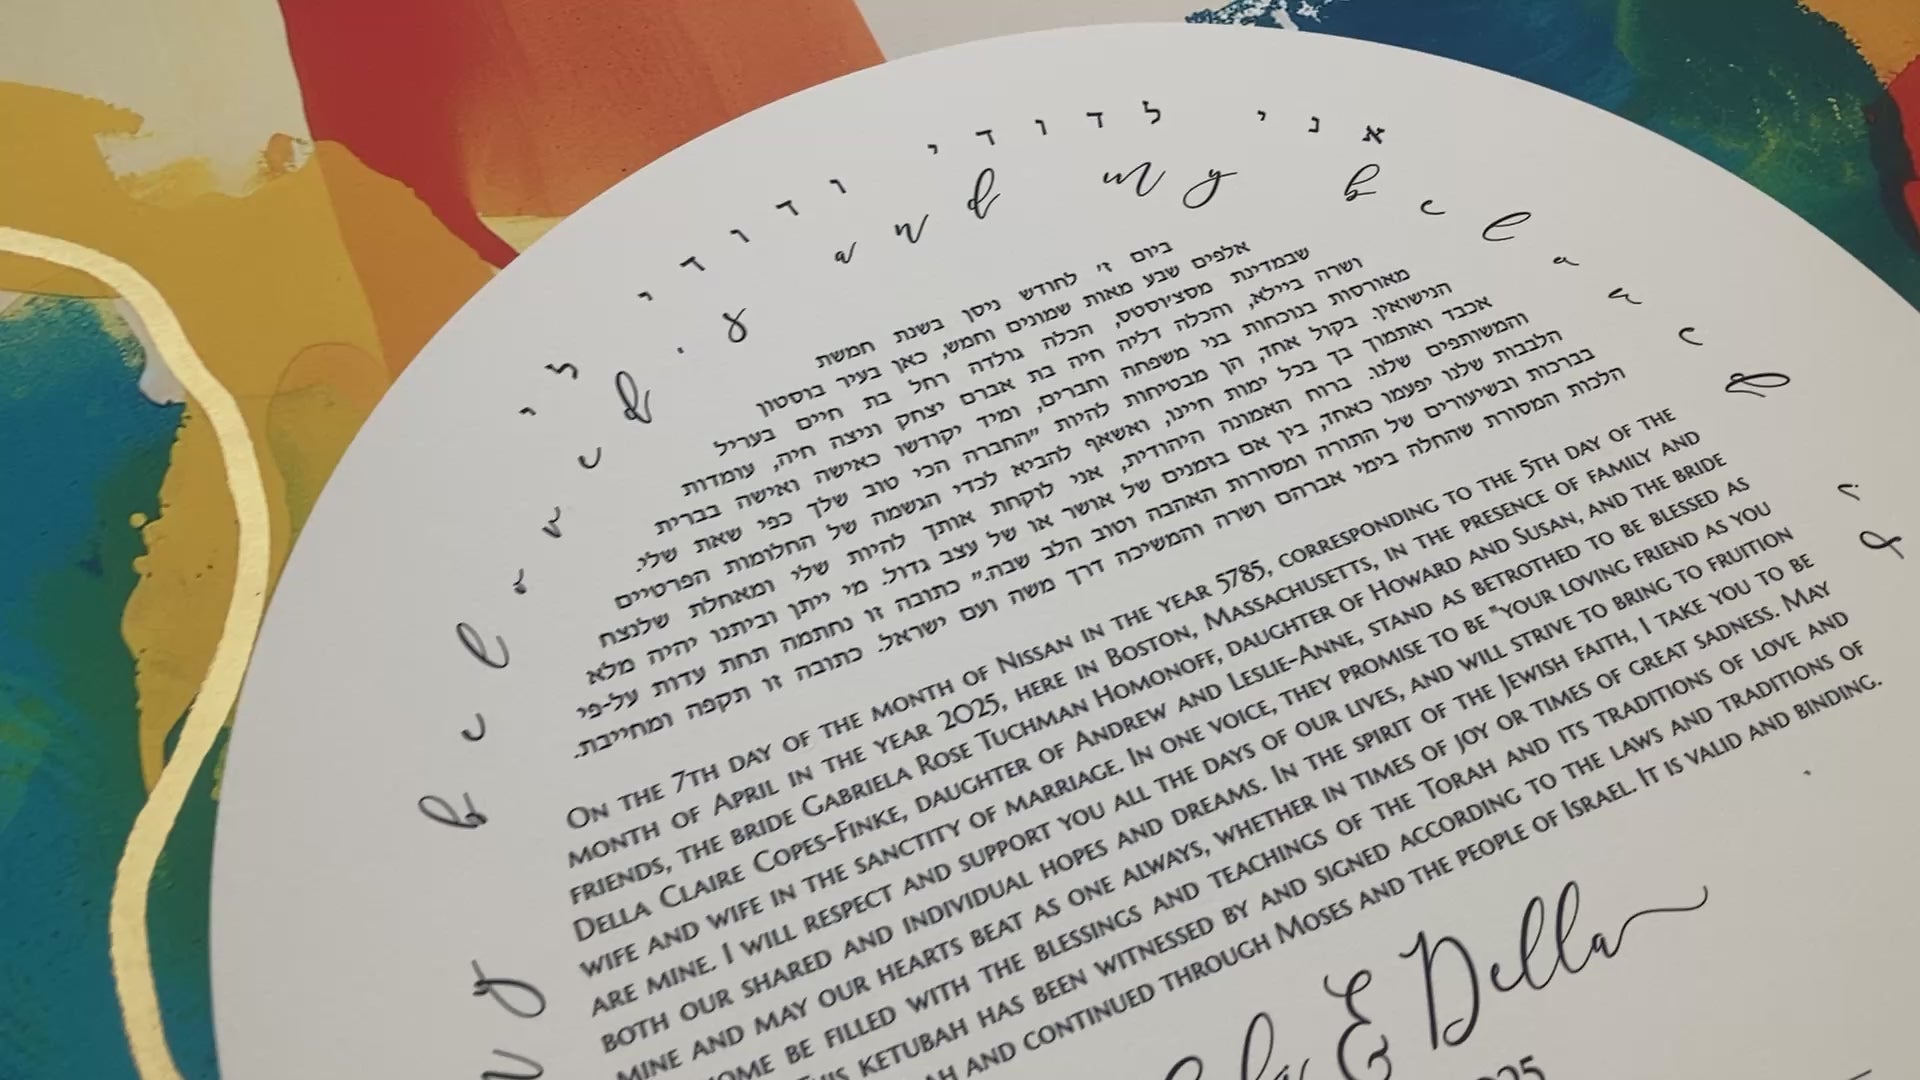 אני לדודי ודודי לי
my beloved's and my beloved is
ביום ז׳ לחודש ניסן בשנת חמשת
אלפים שבע מאות שמונים וחמש, כאן בעיר בוסטון
שבמדינת מסצ׳וסטס, הכלה גולדה רחל בת חיים בעריל
ושרה ביילא, והכלה דליה חיה בת אברם יצחק וניצה חיה, עומדות
מאורסות בנוכחות בני משפחה וחברים, ומיד יקודשו כאישה ואישה בברית
הנישואין. בקול אחד, הן מבטיחות להיות ״החברה הכי טוב שלך כפי שאת שלי.
אכבד ואתמוך בך בכל ימות חיינו, ואשאף להביא לכדי הגשמה של החלומות הפרטיים
והמשותפים שלנו. ברוח האמונה היהודית, אני לוקחת אותך להיות שלי ומאחלת שלנצח
הלבבות שלנו יפעמו כאחד, בין אם בזמנים של אושר או של עצב גדול. מי ייתן וביתנו יהיה מלא
בברכות ובשיעורים של התורה ומסורות האהבה וטוב הלב שבה.״ כתובה זו נחתמה תחת עדות על-פי
הלכות המסורת שהחלה בימי אברהם ושרה והמשיכה דרך משה ועם ישראל. כתובה זו תקפה ומחייבת.
On the 7th day of the month of Nissan in the year 5785, corresponding to the 5th day of the
month of April in the year 2025, here in Boston, Massachusetts, in the presence of family and
friends, the bride Gabriela Rose Tuchman Homonoff, daughter of Howard and Susan, and the bride
Della Claire Copes-Finke, daughter of Andrew and Leslie-Anne, stand as betrothed to be blessed as
wife and wife in the sanctity of marriage. In one voice, they promise to be "your loving friend as you
are mine. I will respect and support you all the days of our lives, and will strive to bring to fruition
both our shared and individual hopes and dreams. In the spirit of the Jewish faith, I take you to be
mine and may our hearts beat as one always, whether in times of joy or times of great sadness. May
be filled with the blessings and teachings of the Torah and its traditions of love and
ketubah has been witnessed by and signed according to the laws and traditions of
and continued through Moses and the people of Israel. It is valid and binding.
& Della